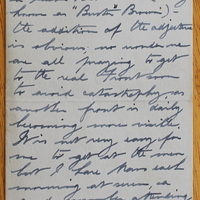 known as Buster Brown).
the addition of the adjective
is obvious; no wonder we
are all praying to get
to the real front soon
to avoid catastrophe, as
another front is daily
becoming more visible.
It is not very easy for
me to get at the men
but I have hours each
morning at seven, a